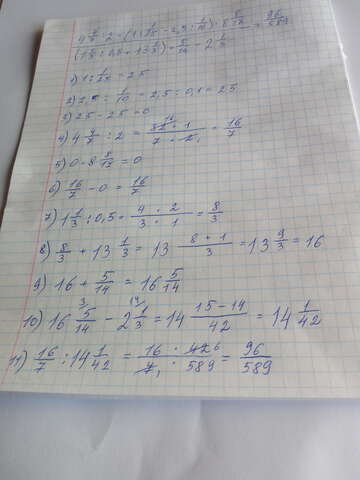 4 4/7 : 2 - (1 : 1/25 - 2,5 : 1/10) · 8 8/13 = 96/589
(1 1/3 : 0,5 + 13 1/3) + 5/14 - 2 1/3
1) 1 : 1/25 = 25
2) 2,5 : 1/10 = 2,5 : 0,1 = 25
3) 25 - 25 = 0
4) 4 4/7 : 2 = 32 · 1 / 7 · 2 = 16/7
5) 0 · 8 8/13 = 0
6) 16/7 - 0 = 16/7
7) 1 1/3 : 0,5 = 4 · 2 / 3 · 1 = 8/3
8) 8/3 + 13 1/3 = 13 8 + 1 / 3 = 13 9/3 = 16
9) 16 + 5/14 = 16 5/14
10) 16 5/14 - 2 1/3 = 14 15 - 14 / 42 = 14 1/42
11) 16/7 : 14 1/42 = 16 · 42 6 / 7 1 · 589 = 96/589